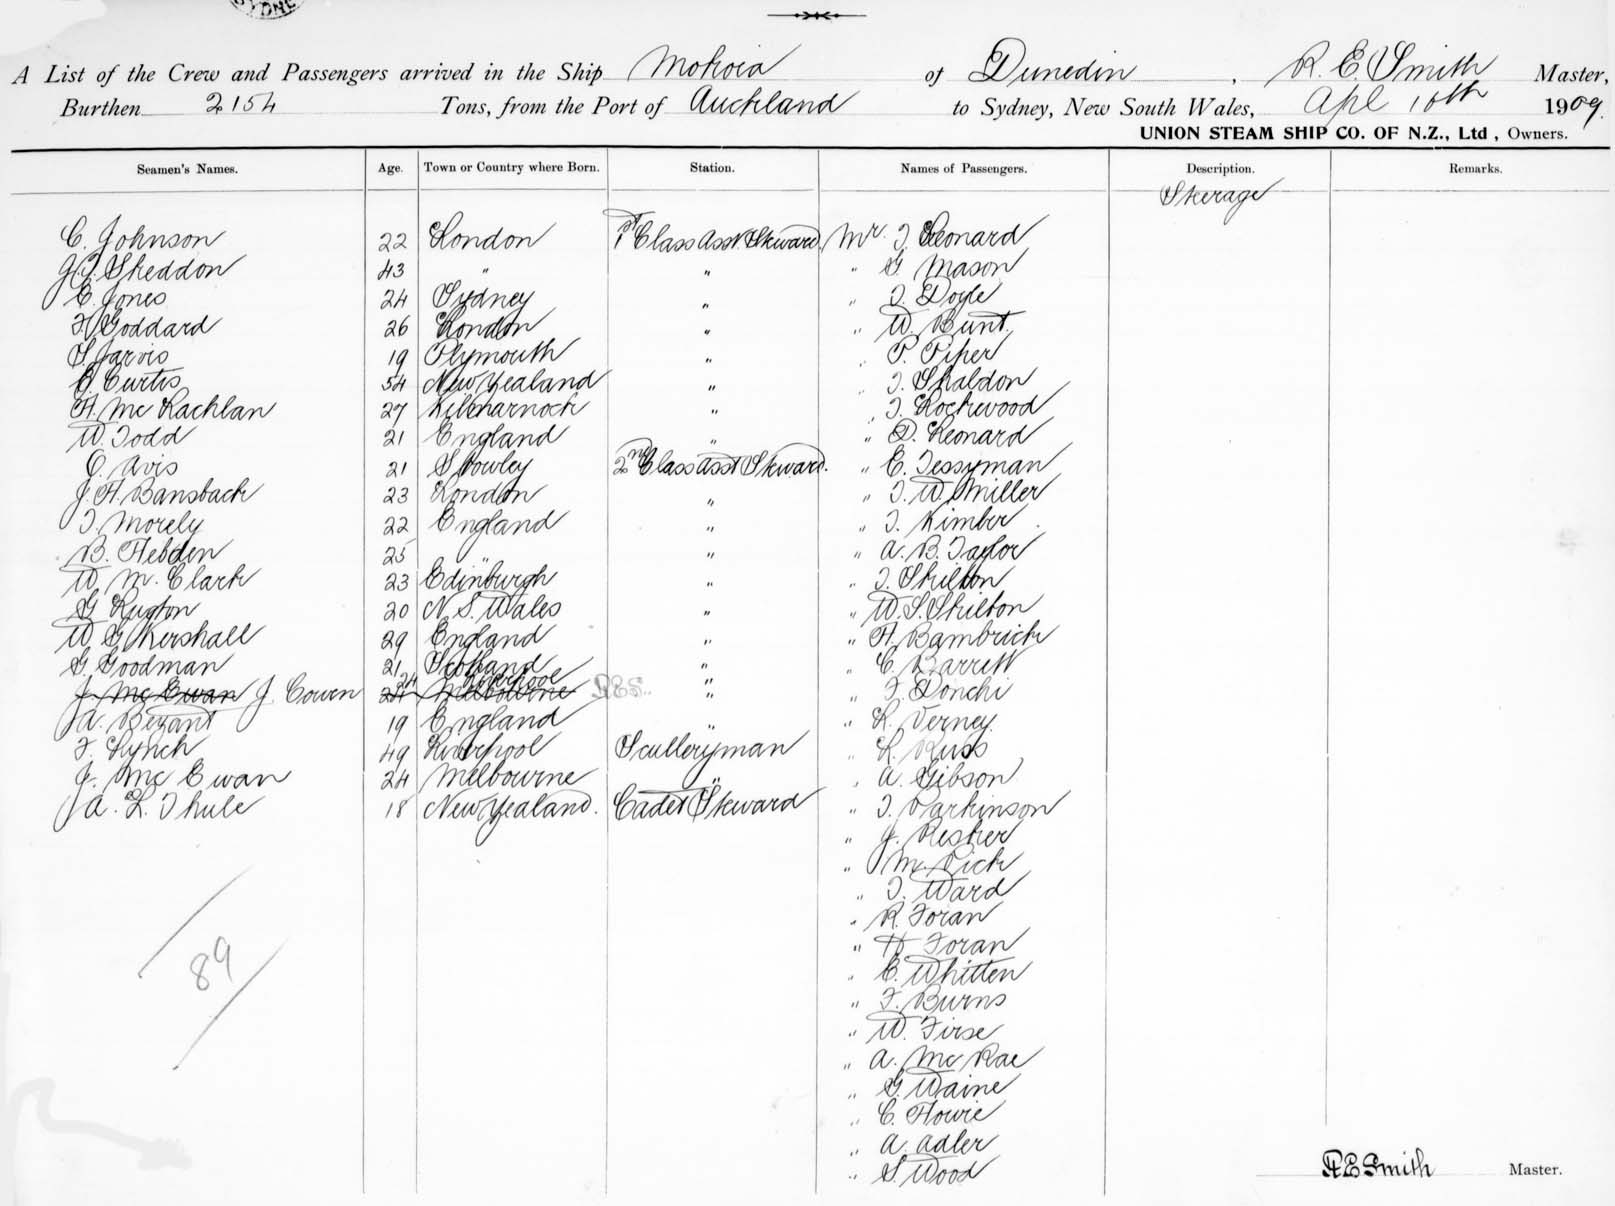 A List of the Crew and Passengers arrived in the Ship Mokoia of Dunedin, R. E. Smith Master,
Burthen 2154 Tons, from the Port of Auckland to Sydney, New South Wales, Apl 10th 1909.
UNION STEAM SHIP CO. OF N.Z., Ltd, Owners.
Seamen's Names. Age. Town or Country where Born. Station. Names of Passengers. Description. Remarks.
Steerage
C. Johnson 22 London 1st Class Asst Steward Mr. T. Leonard
J. T. Sheddon 43 " " " G. Mason
E. Jones 24 Sydney " " T. Doyle
F. Goddard 26 London " " W. Bunt
S. Jarvis 19 Plymouth " P. Piper
C. Curtis 54 New Zealand " " T. Shaldon
H. McLachlan 27 Kilmarnock " " T. Lockwood
W. Todd 21 England " " D. Leonard
O. Avis 21 2nd Class Asst Steward. " E. Tessyman
J. H. Bansback 23 London " " T. W. Miller
T. Morely 22 England " " T. Kimber
B. Hebden 25 " " " A. B. Taylor
W. M. Clark 23 Edinburgh " " T. Skilton
G. 20 N. S. Wales " " W. S. Skilton
W. G. Kershall 29 England " " H. Bambrick
G. Goodman 21 Scotland " " C. Barrett
J. McEwan J. Cowen 24 24 Liverpool Melbourne R.E.S. " " F. Donchi
A. Bezant 19 England " " L. Verney
F. Lynch 49 Liverpool Sculleryman " L. Russ
J. McEwan 24 Melbourne " " A. Gibson
A. L. Thule 18 New Zealand. Cadet Steward " T. Parkinson
" J. Resker
" M. Vick
" T. Ward
" R. Foran
" H. Foran
" C. Whitten
" F. Burns
" W. Firse
" A. McRae
" G. Waine
" C. Howie
" A. Adler
" S. Wood
89
R E Smith Master.